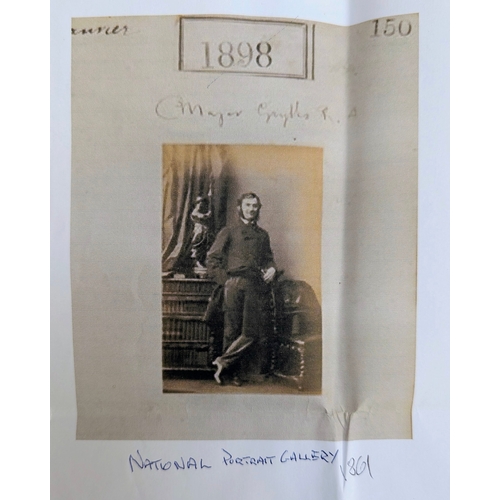 aurier
150
1898
Major Grylls R.A
NATIONAL PORTRAIT GALLERY 1861